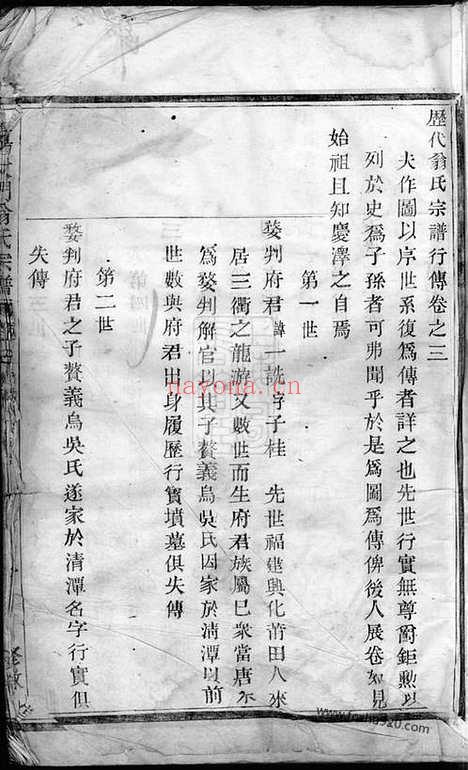 歷代翁氏宗譜行傳卷之三
夫作圖以序世系復爲傳者詳之也先世行實無尊爵鉅勲以
列於史爲子孫者可弗聞乎於是爲圖爲傳俾後人展卷如見
始祖且知慶澤之自焉
第一世
婺判府君諱一洗字子桂 先世福建興化莆田人來
居三衢之龍游又數世而生府君族屬已衆當唐末
爲婺判解官以其子贅義烏吳氏因家於清潭以前
世數與府君出身履歷行實墳墓俱失傳
第二世
婺判府君之子贅義烏吳氏遂家於清潭名字行實俱
失傳
翁氏宗譜
nayona.cn